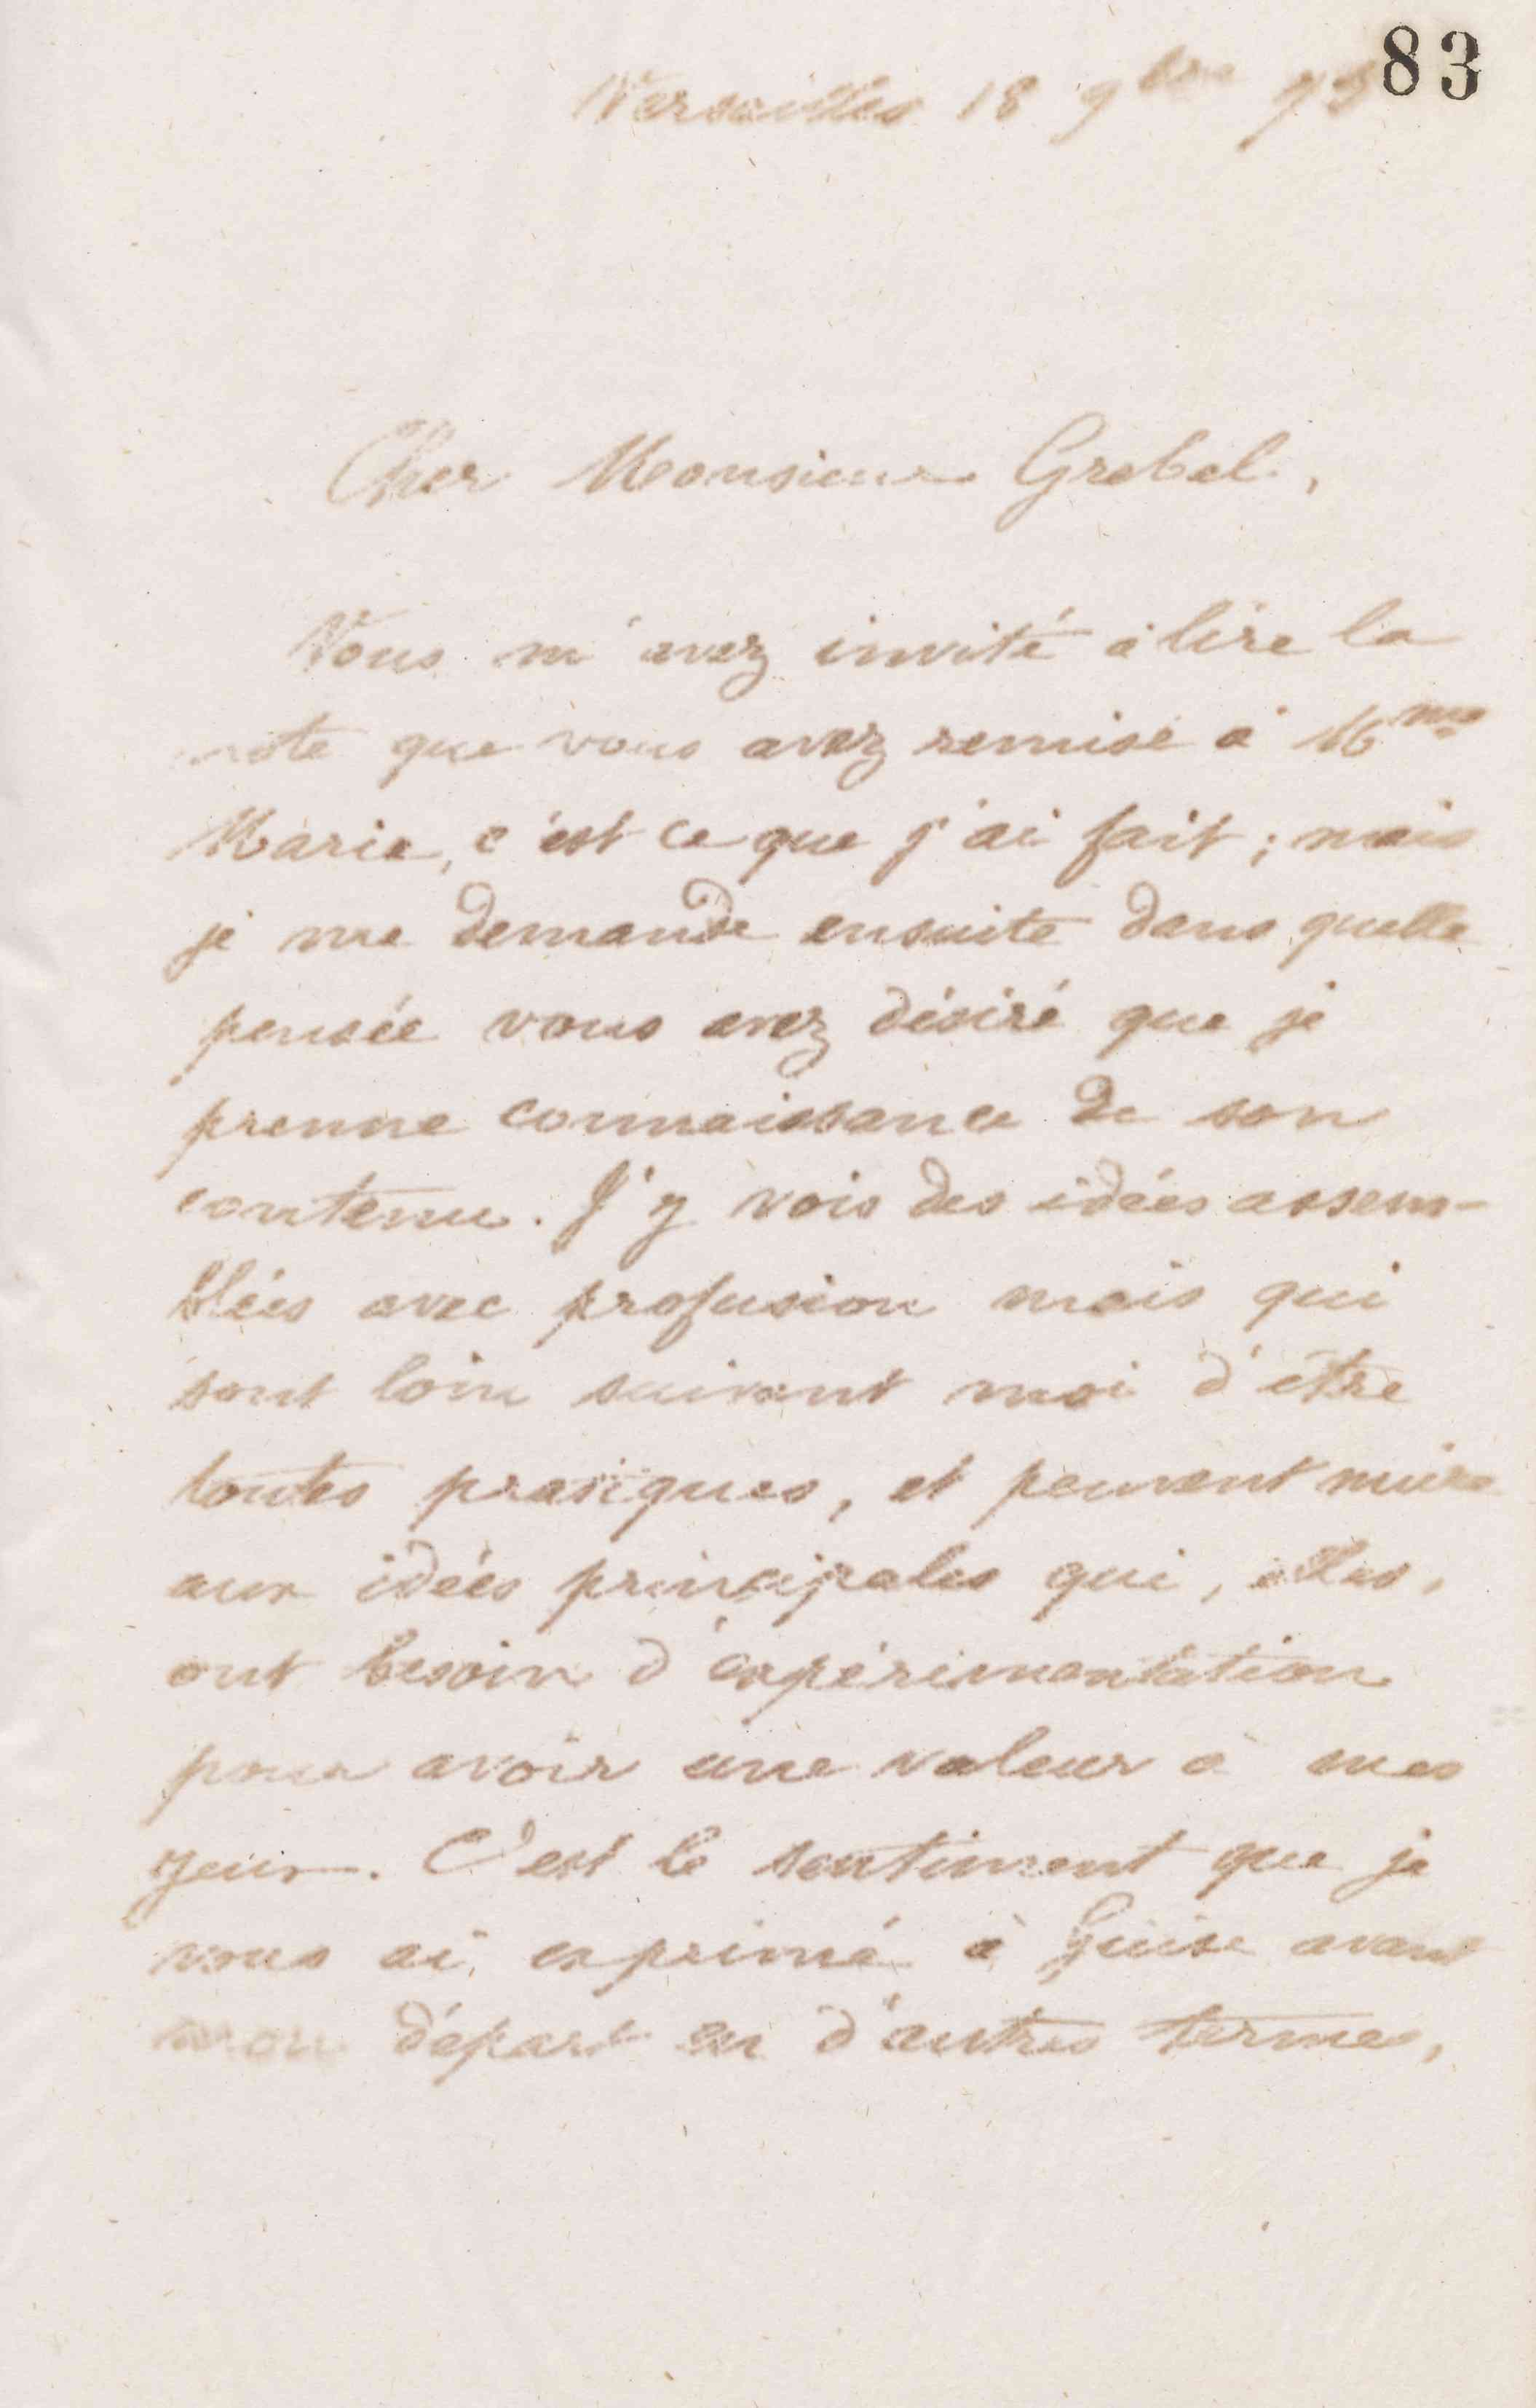 83
Versailles 18 9bre 73
Cher Monsieur Grebel,
Vous m'avez invité à lire la
note que vous avez remise à Mme
Marie, c'est ce que j'ai fait ; mais
je me demande ensuite dans quelle
pensée vous avez désiré que je
prenne connaissance de son
contenu. J'y vois des idées assem-
blées avec profusion mais qui
sont loin suivant moi d'être
toutes pratiques, et peuvent nuire
aux idées principales qui, elles,
ont besoin d'expérimentation
pour avoir une valeur à mes
yeux. C'est le sentiment que je
vous ai exprimé à Guise avant
mon départ en d'autres termes,